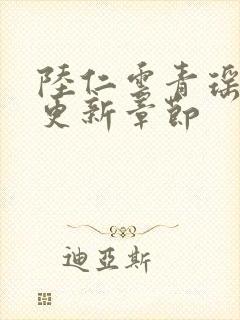 陸仁雲青瑤
更新章節
迪亞斯